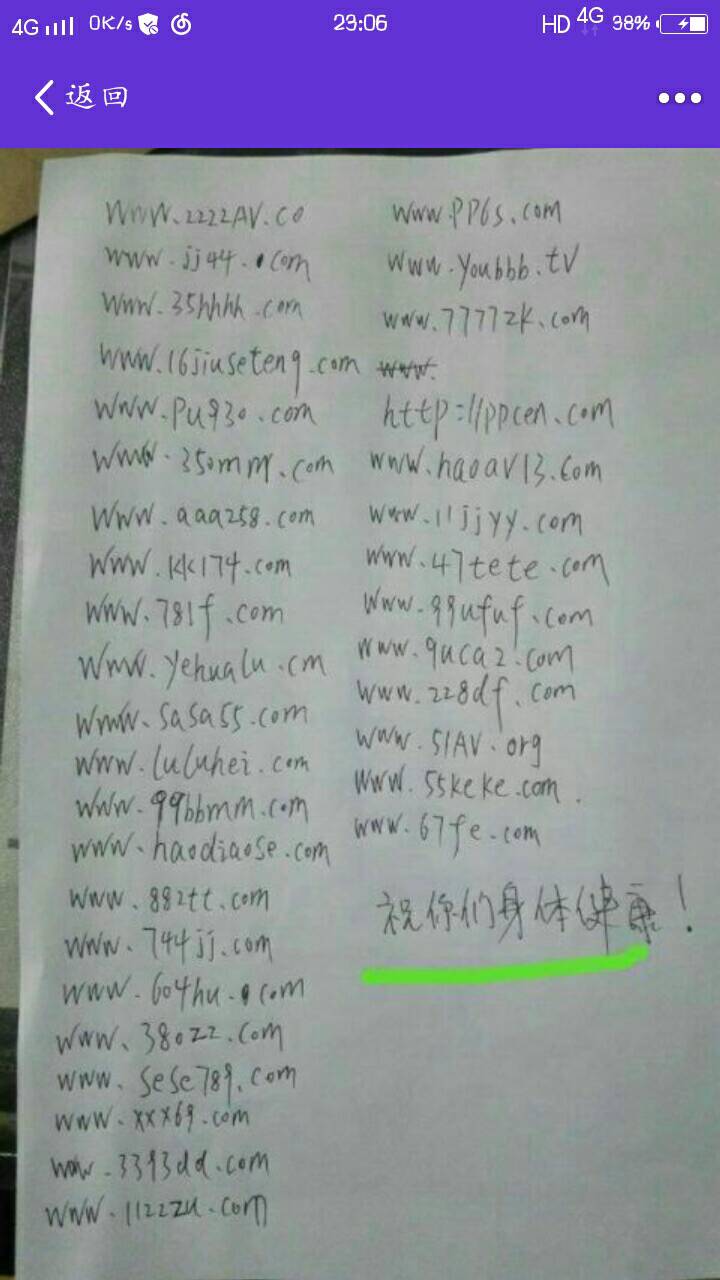 4G 0K/s 23:06 HD 4G 38%
返回
www.2222AV.co
www.jj44.com
www.35hhhh.com
www.16jiuseteng.com
www.pu930.com
www.350mm.com
www.aaa258.com
www.kk174.com
www.781f.com
www.yehualu.cm
www.sasa55.com
www.luluhei.com
www.99bbmm.com
www.haodiaose.com
www.882tt.com
www.744jj.com
www.604hu.com
www.380zz.com
www.sese789.com
www.xxx69.com
www.3393dd.com
www.1122zu.com
www.PP6s.com
www.youbbb.tv
www.7777zk.com
www.
http://ppcen.com
www.haoav13.com
www.11jjyy.com
www.47tete.com
www.99ufuf.com
www.9uca2.com
www.228df.com
www.51AV.org
www.55keke.com.
www.67fe.com
祝你们身体健康!